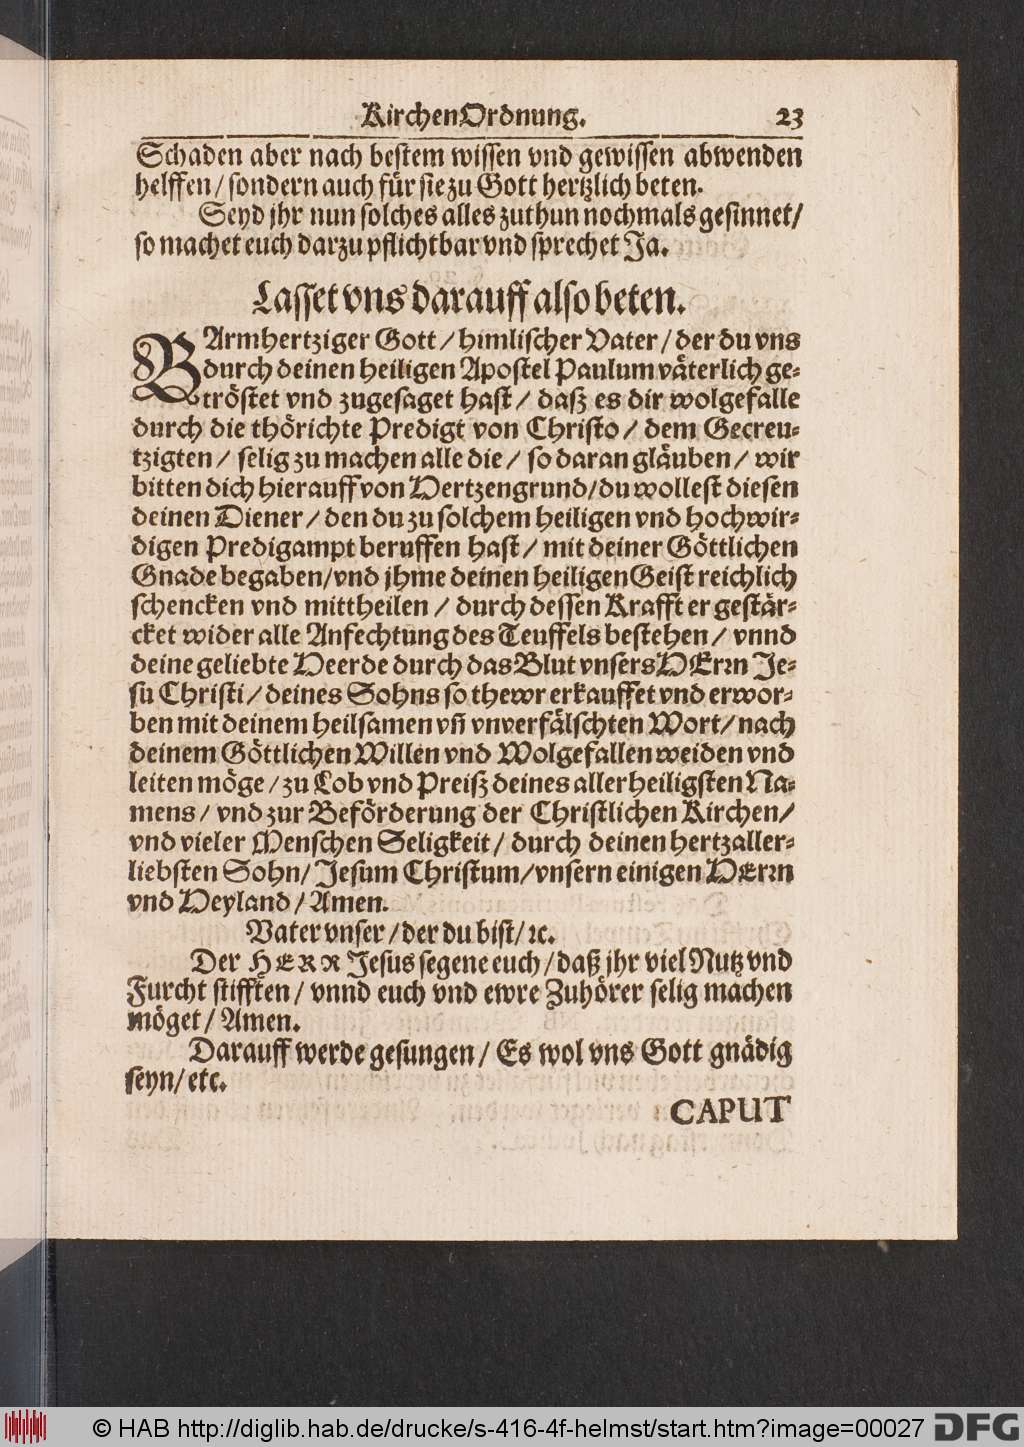 KirchenOrdnung. 23
Schaden aber nach bestem wissen vnd gewissen abwenden
helffen / sondern auch für sie zu Gott hertzlich beten.
Seyd jhr nun solches alles zuthun nochmals gesinnet /
so machet euch darzu pflichtbar vnd sprechet Ja.
Lasset vns darauff also beten.
BArmhertziger Gott / himlischer Vater / der du vns
durch deinen heiligen Apostel Paulum väterlich ge-
tröstet vnd zugesaget hast / daß es dir wolgefalle
durch die thörichte Predigt von Christo / dem Gecreu-
tzigten / selig zu machen alle die / so daran gläuben / wir
bitten dich hierauff von Hertzengrund / du wollest diesen
deinen Diener / den du zu solchem heiligen vnd hochwir-
digen Predigampt beruffen hast / mit deiner Göttlichen
Gnade begaben / vnd jhme deinen heiligen Geist reichlich
schencken vnd mittheilen / durch dessen Krafft er gestär-
cket wider alle Anfechtung des Teuffels bestehen / vnnd
deine geliebte Heerde durch das Blut vnsers HErrn Je-
su Christi / deines Sohns so thewr erkauffet vnd erwor-
ben mit deinem heilsamen vñ vnverfälschten Wort / nach
deinem Göttlichen Willen vnd Wolgefallen weiden vnd
leiten möge / zu Lob vnd Preiß deines allerheiligsten Na-
mens / vnd zur Beförderung der Christlichen Kirchen /
vnd vieler Menschen Seligkeit / durch deinen hertzaller-
liebsten Sohn / Jesum Christum / vnsern einigen HErrn
vnd Heyland / Amen.
Vater vnser / der du bist / ꝛc.
Der HERR Jesus segene euch / daß jhr viel Nutz vnd
Furcht stifften / vnnd euch vnd ewre Zuhörer selig machen
möget / Amen.
Darauff werde gesungen / Es wol vns Gott gnädig
seyn / etc.
CAPUT
© HAB http://diglib.hab.de/drucke/s-416-4f-helmst/start.htm?image=00027 DFG